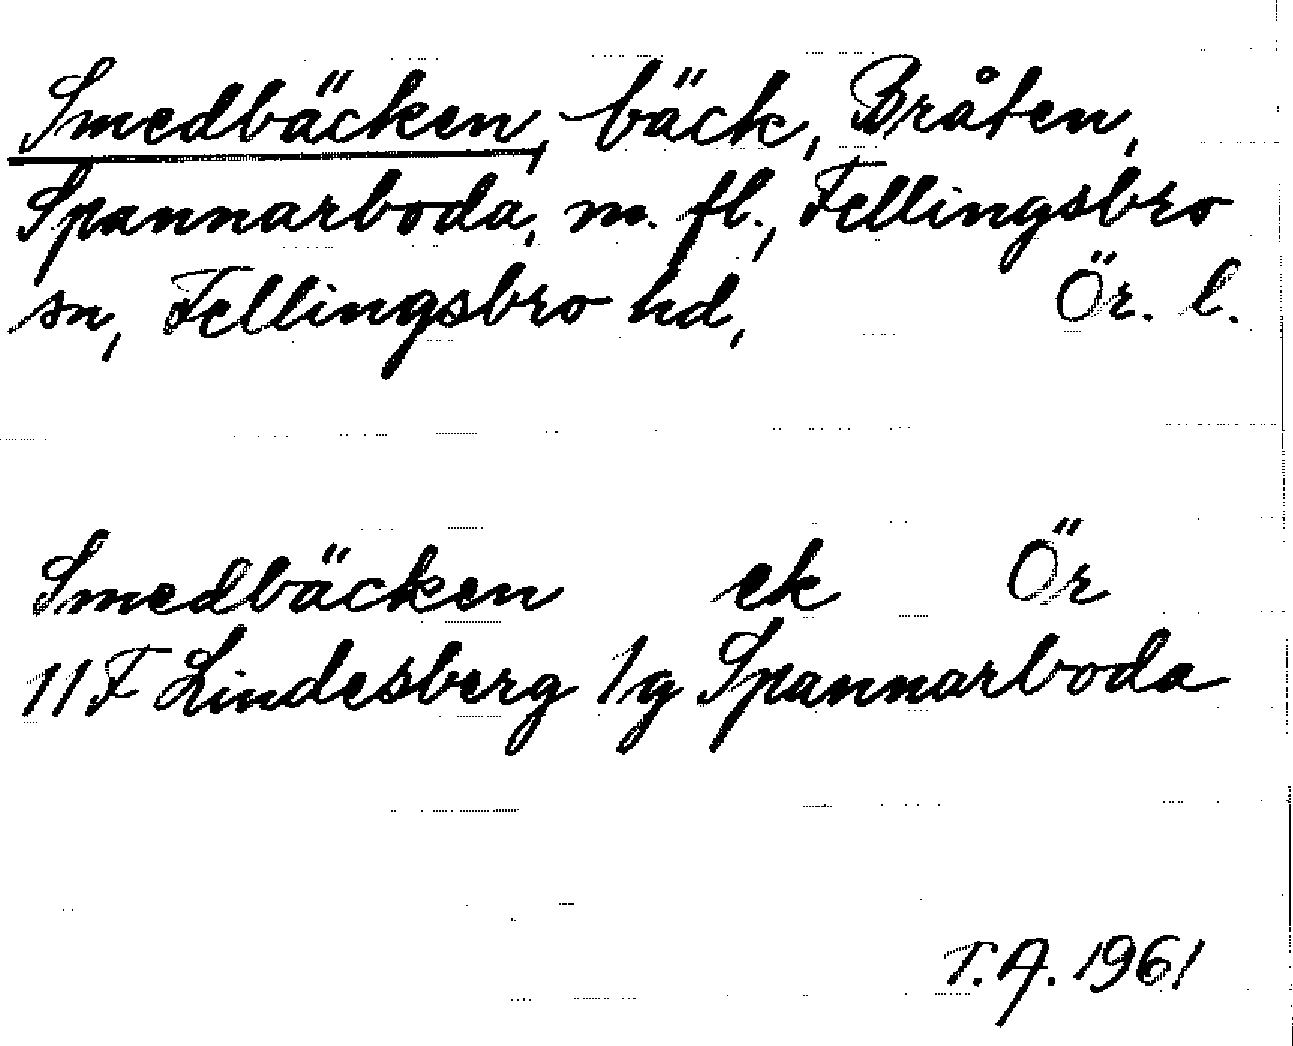 Smedbäcken, bäck, Bråten,
Spannarboda, m. fl., Fellingsbro
sn, Fellingsbro hd, Ör. l.
Smedbäcken ek Ör
11F Lindesberg 1g Spannarboda
T.A. 1961